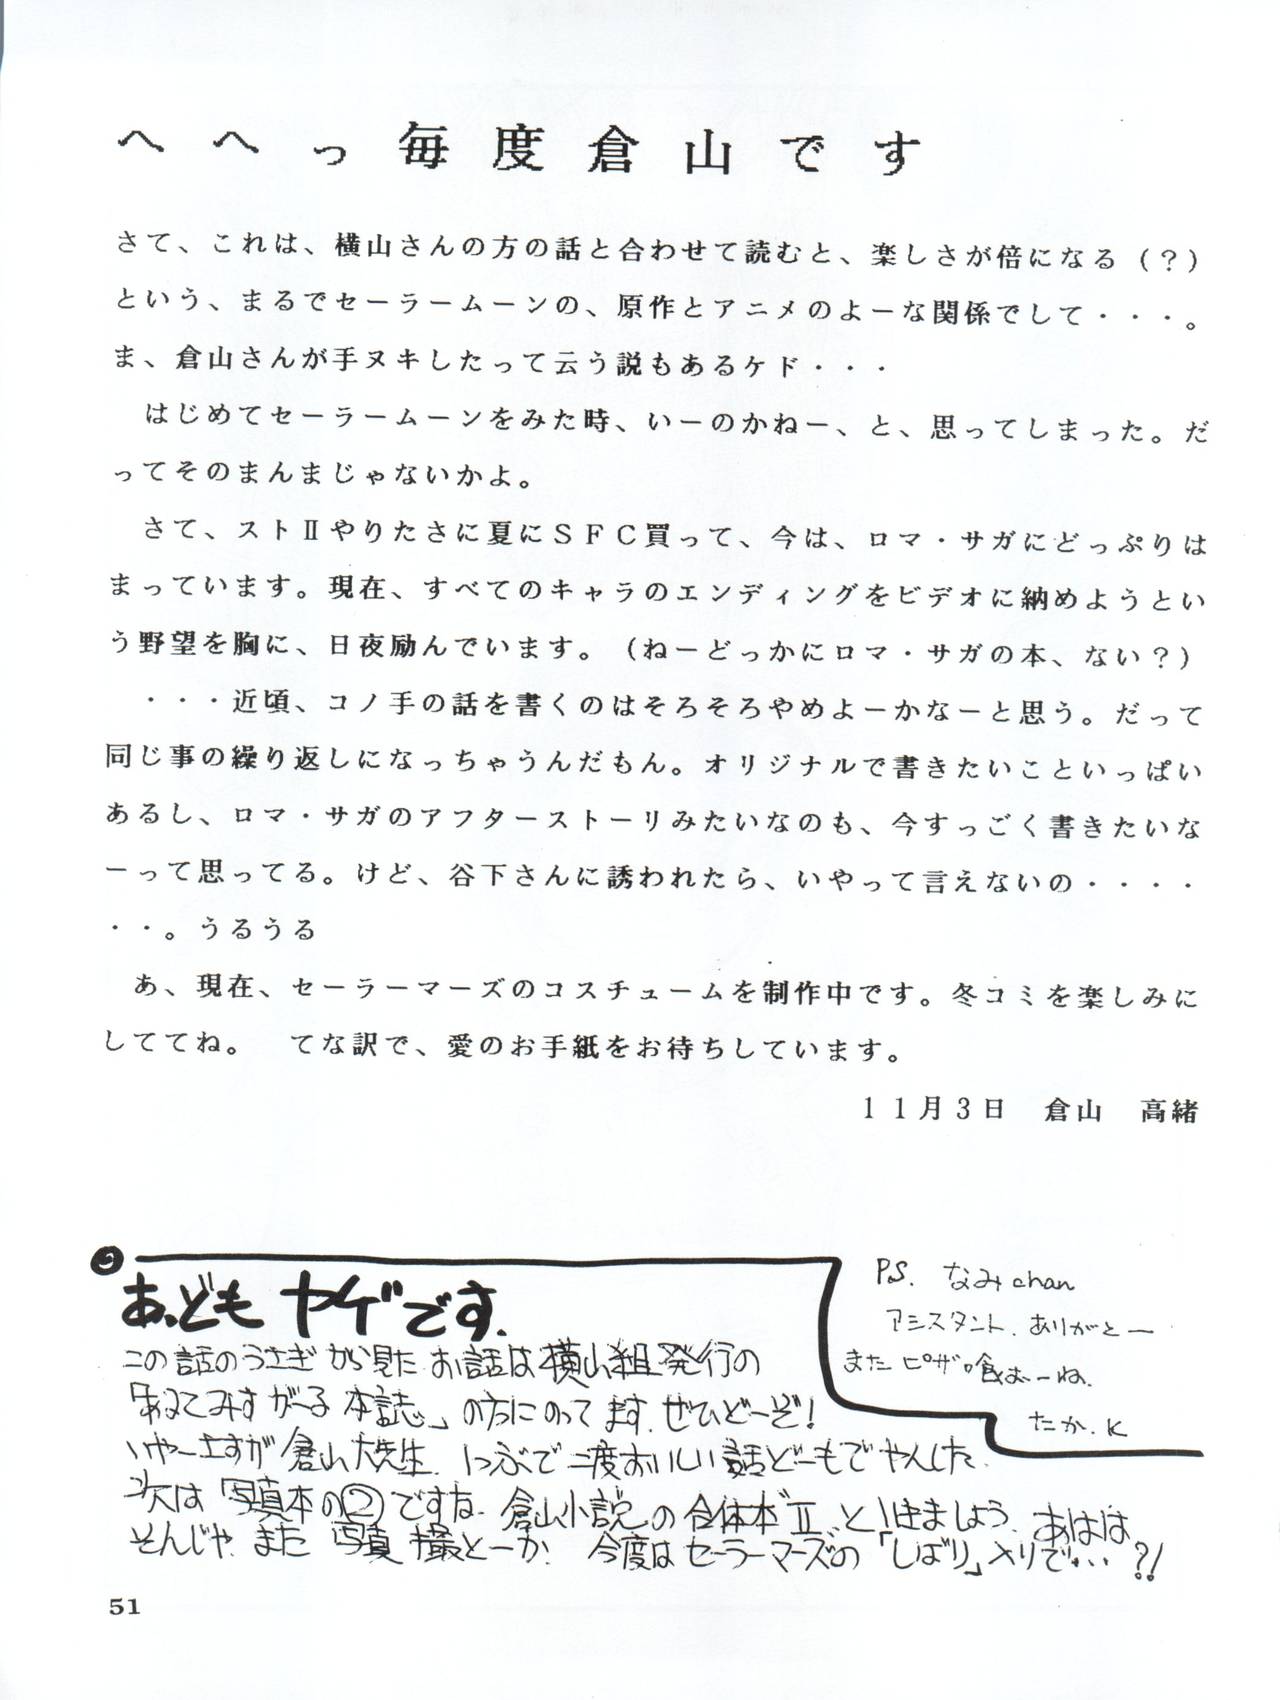 へへっ毎度倉山です
さて、これは、横山さんの方の話と合わせて読むと、楽しさが倍になる（？）
という、まるでセーラームーンの、原作とアニメのよーな関係でして・・・。
ま、倉山さんが手ヌキしたって云う説もあるケド・・・
　はじめてセーラームーンをみた時、いーのかねー、と、思ってしまった。だ
ってそのまんまじゃないかよ。
　さて、ストⅡやりたさに夏にＳＦＣ買って、今は、ロマ・サガにどっぷりは
まっています。現在、すべてのキャラのエンディングをビデオに納めようとい
う野望を胸に、日夜励んでいます。（ねーどっかにロマ・サガの本、ない？）
　・・・近頃、コノ手の話を書くのはそろそろやめよーかなーと思う。だって
同じ事の繰り返しになっちゃうんだもん。オリジナルで書きたいこといっぱい
あるし、ロマ・サガのアフターストーリみたいなのも、今すっごく書きたいな
ーって思ってる。けど、谷下さんに誘われたら、いやって言えないの・・・・
・・。うるうる
　あ、現在、セーラーマーズのコスチュームを制作中です。冬コミを楽しみに
しててね。　てな訳で、愛のお手紙をお待ちしています。
１１月３日　倉山　高緒
あ、ども ヤゲです.
この話のうさぎから見たお話は横山組発行の
「あるてみすがーる本誌」の方にのってます.ぜひどーぞ!
いやーさすが倉山大先生. 1つぶで二度おいしい話どーもでやんした.
次は「写真本の②」ですな. 倉山小説の合体本Ⅱ といきましょう. あはは
そんじゃ また 写真 撮とーか. 今度はセーラーマーズの「しばり」メリで・・・?!
P.S. なみchan
アシスタント. ありがとー
またピザ喰おーね.
たか.K
51